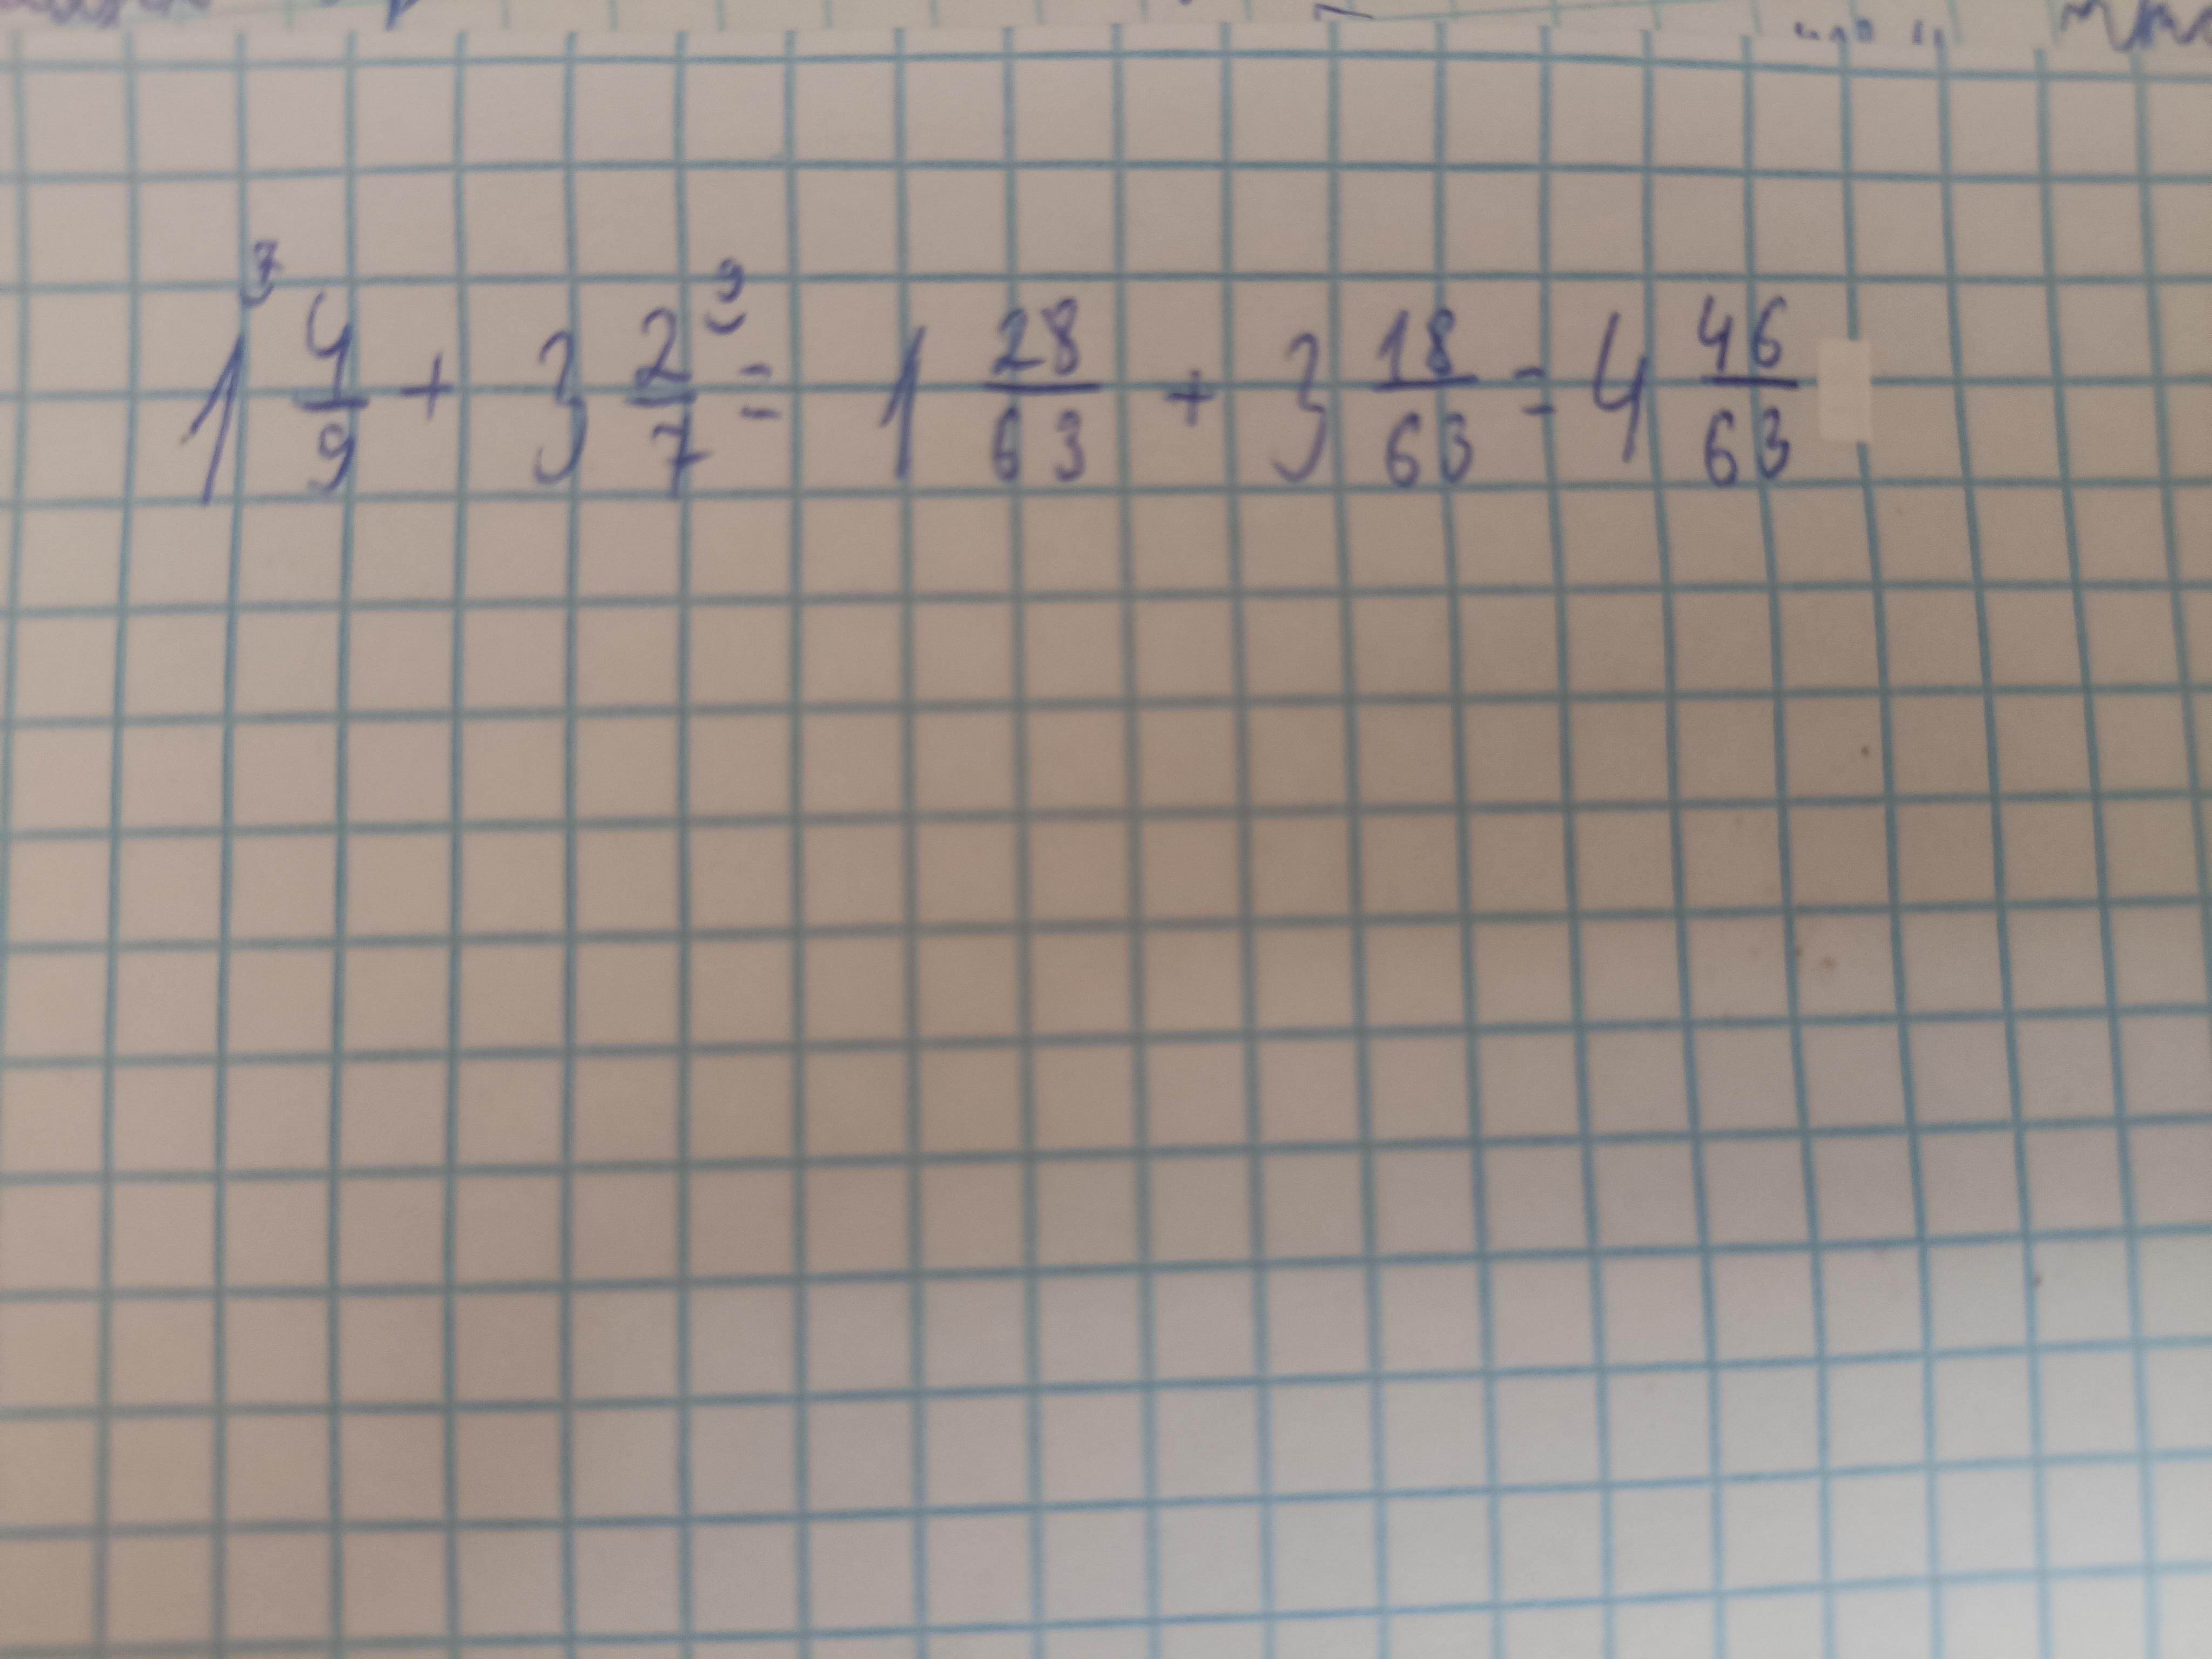 1 ⁷⁾4/9 + 3 2⁽⁹/7 = 1 28/63 + 3 18/63 = 4 46/63